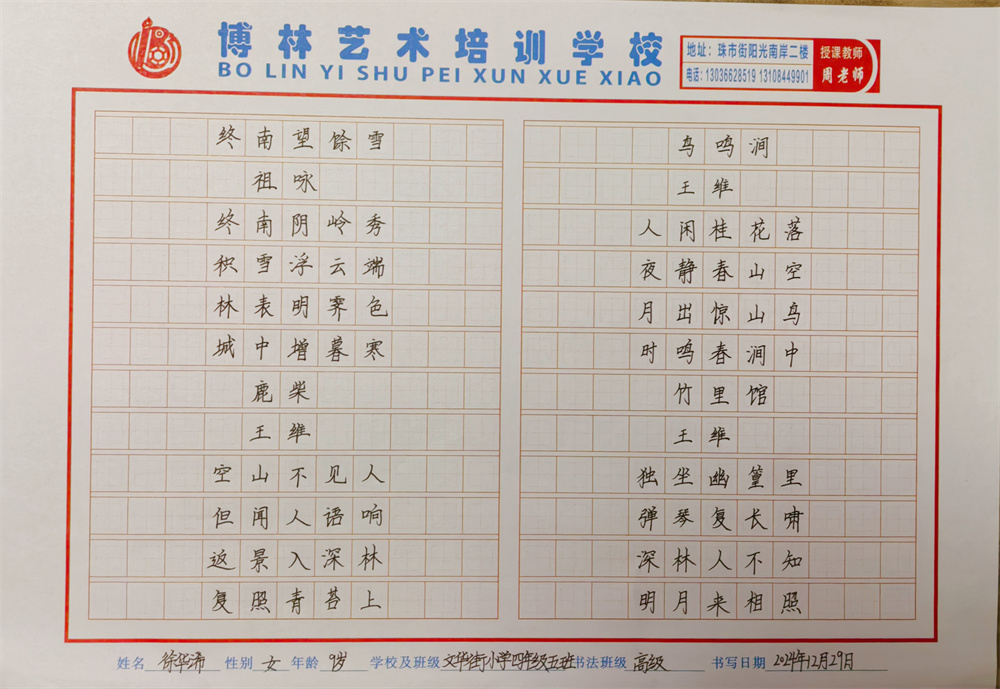 博林艺术培训学校
BO LIN YI SHU PEI XUN XUE XIAO
地址：珠市街阳光南岸二楼
电话：13036628519 13108449901
授课教师
周老师
终南望馀雪
祖咏
终南阴岭秀
积雪浮云端
林表明霁色
城中增暮寒
鹿柴
王维
空山不见人
但闻人语响
返景入深林
复照青苔上
鸟鸣涧
王维
人闲桂花落
夜静春山空
月出惊山鸟
时鸣春涧中
竹里馆
王维
独坐幽篁里
弹琴复长啸
深林人不知
明月来相照
姓名 徐华浠 性别 女 年龄 9岁 学校及班级 文华街小学四年级五班 书法班级 高级 书写日期 2024年12月29日